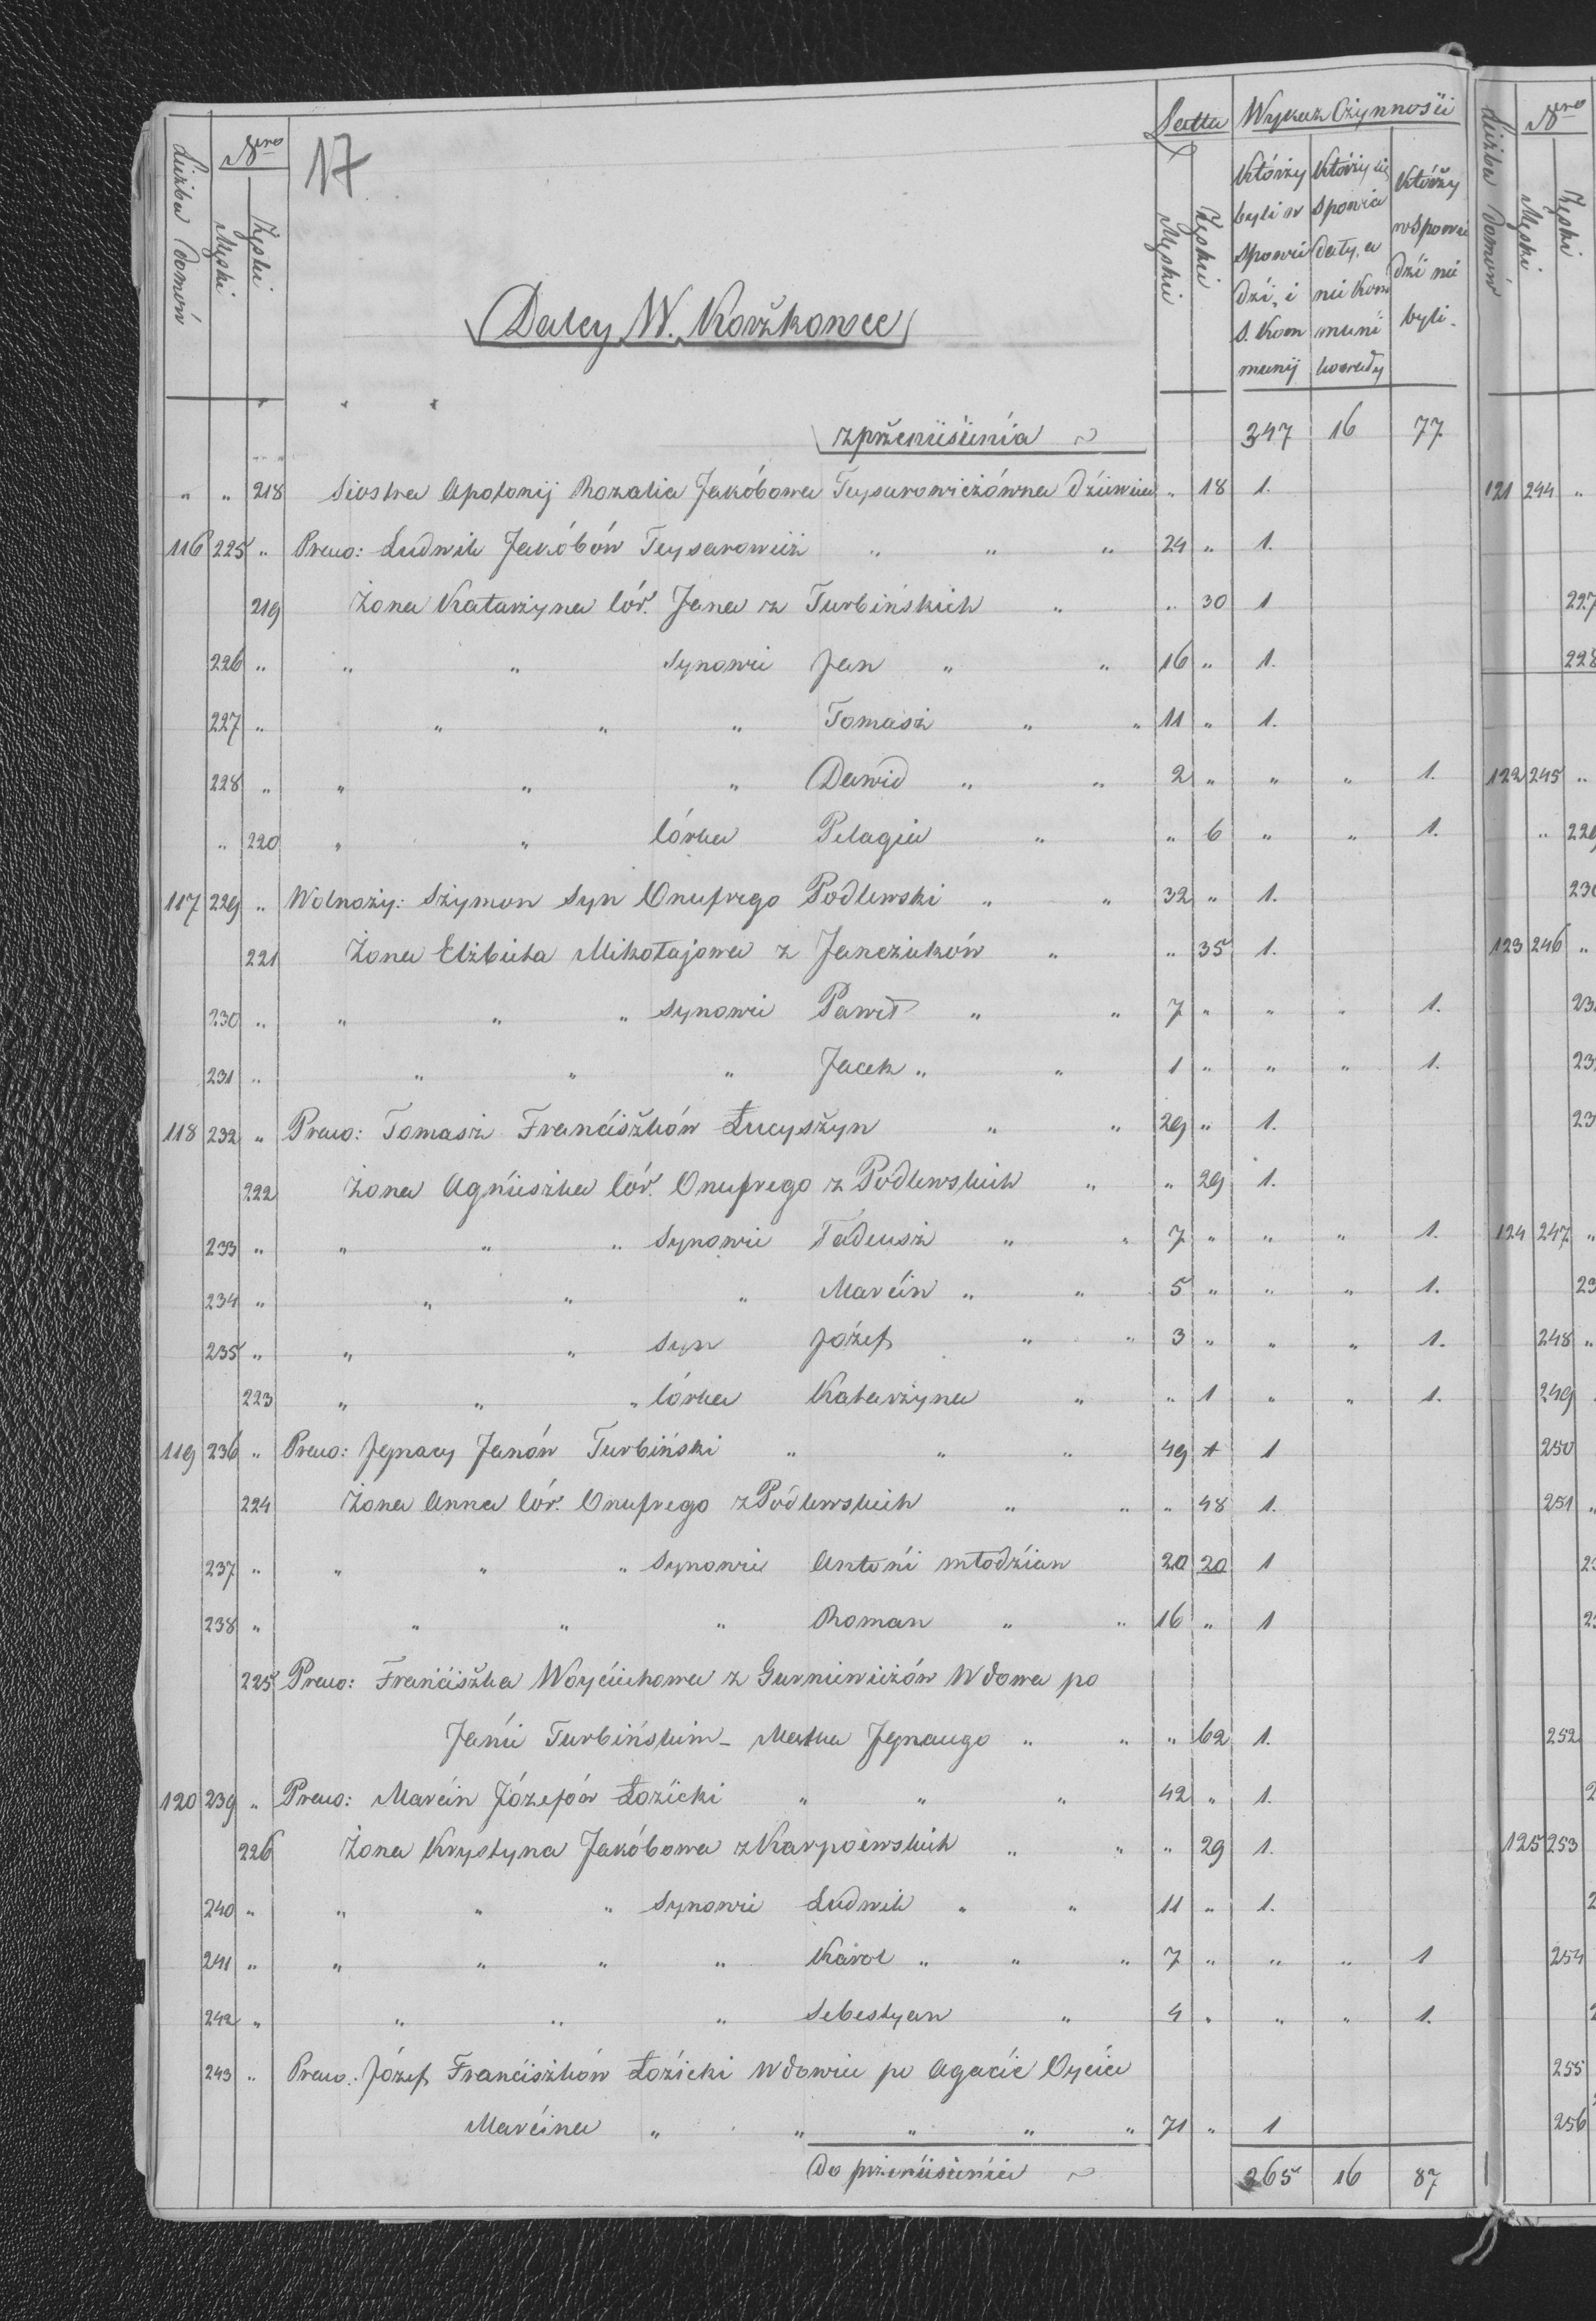 17
Liczba Domów
Nero
Męski
Żeński
Latta
Męskie
Żeńskie
Wykaz Czynności
Którzy byli w Spowiedzi, i S. Kommunij
Którzy się Spowiadały, a nie Kommunikowały
Którzy w Spowiedzi nie byli.
Daley W. Korżkowce
z przeniesienia ~ 347 16 77
" " 218 Siostra Apolonij Rozalia Jakóbowa Teysarowiczówna Dziewica " 18 1.
116 225 " Praco: Ludwik Jakóbów Teysarowicz " " " 24 " 1.
219 Żona Katarzyna Cór. Jana z Turbińskich " " 30 1
226 " " " Synowie Jan " " 16 " 1.
227 " " " " Tomasz " " 11 " 1.
228 " " " " Dawid " " 2 " " " 1.
" 220 " " Córka Pelagia " " 6 " " 1.
117 229 " Wolnoży: Szymon Syn Onufrego Podlewski " " 32 " 1.
221 Żona Elżbieta Mikołajowa z Janczuków " " 35 1.
230 " " " " Synowie Paweł " " 7 " " " 1.
231 " " " " Jacek " " 1 " " " 1.
118 232 " Praco: Tomasz Franciszków Łucyszyn " " 29 " 1.
222 Żona Agnieszka Cór. Onufrego z Podlewskich " " 29 1.
233 " " " " Synowie Tadeusz " " 7 " " " 1.
234 " " " " Marcin " " 5 " " " 1.
235 " " " Syn Józef " " 3 " " " 1.
223 " " " Córka Katarzyna " " 1 " " 1.
119 236 " Praco: Jgnacy Janów Turbiński " " " 49 + 1
224 Żona Anna Cór. Onufrego z Podlewskich " " " 48 1.
237 " " " " Synowie Antoni młodzian 20 20 1
238 " " " " Roman " " 16 " 1
225 Praco: Franciszka Woyciechowa z Gurniewiczów Wdowa po
Janie Turbińskim - Matka Jgnacego " " " 62 1.
120 239 " Praco: Marcin Józefów Łozicki " " " 42 " 1.
226 Żona Krystyna Jakóbowa z Karpoiewskich " " " 29 1.
240 " " " " Synowie Ludwik " " 11 " 1.
241 " " " " " Karol " " " 7 " " " 1
242 " " " " Sebestyan " 4 " " " 1.
243 " Praco: Józef Franciszków Łozicki Wdowiec po Agacie Oyciec
Marcina " " " " " 71 " 1
Do przeniesienia ~ 265 16 87
Liczba Domów
Nero
Męski
Żeński
121 244 "
227
228
122 245 "
" 229
230
123 246 "
124 247 "
248 "
249
250
251 "
252
125 253
254
255
256